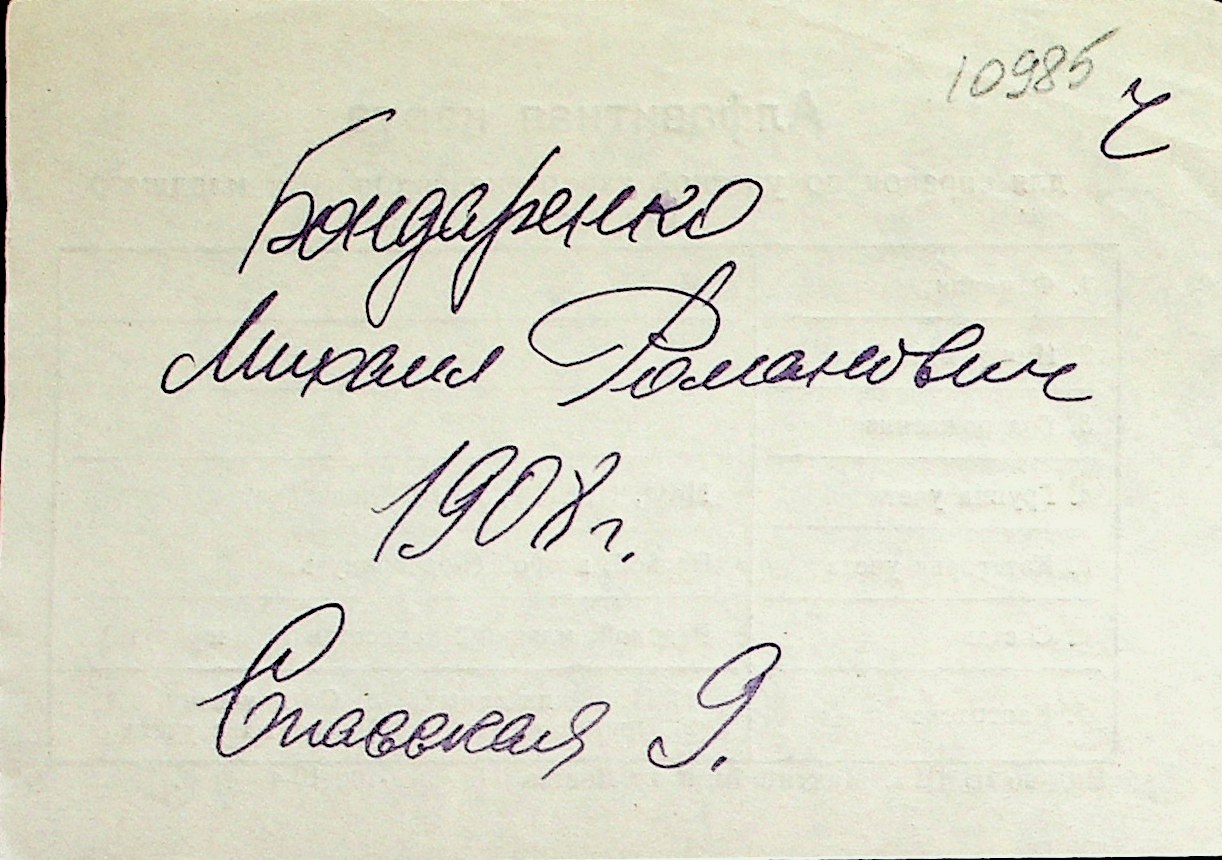 10985
ч
Бондаренко
Михаил Романович
1908 г.
Спасская 9.